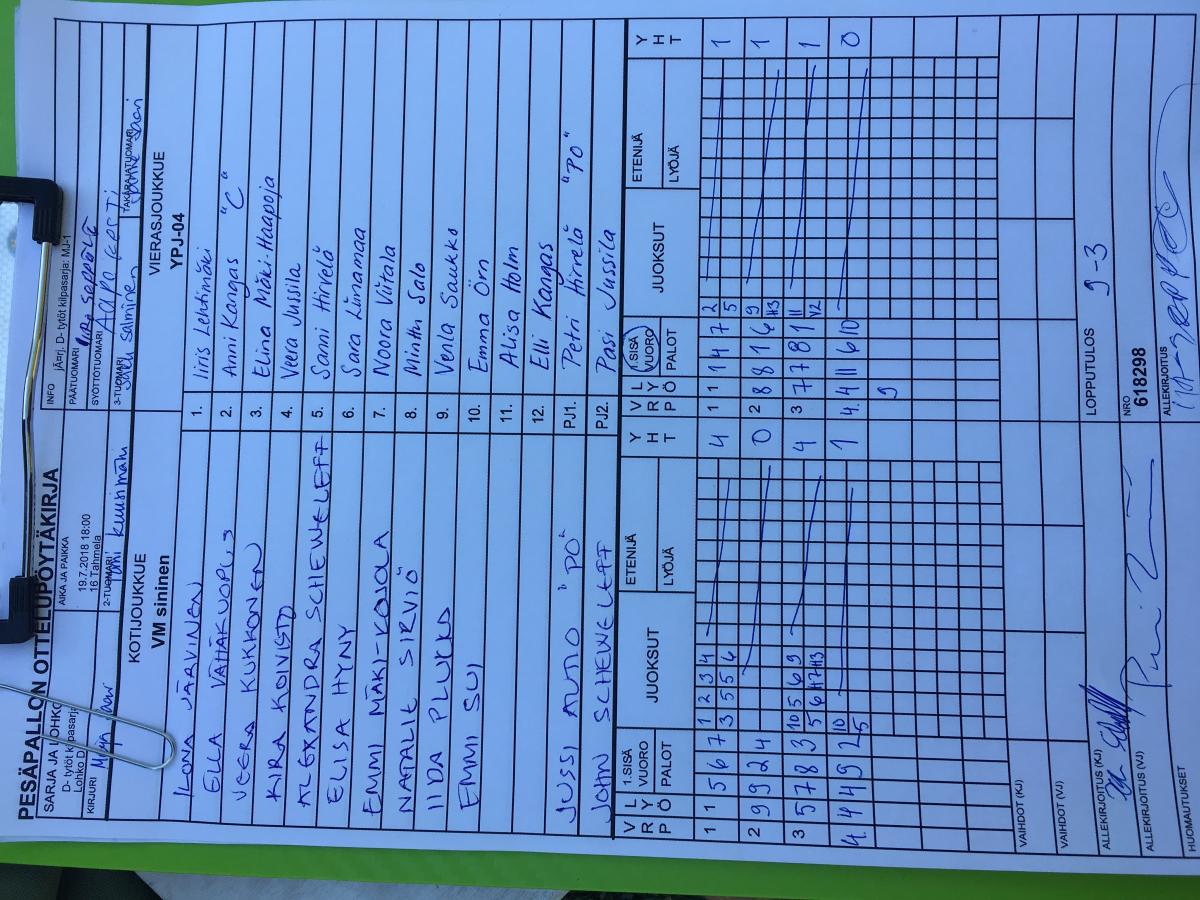 PESÄPALLON OTTELUPÖYTÄKIRJA
SARJA JA LOHKO
D- tytöt kilpasarja
Lohko D
AIKA JA PAIKKA
19.7.2018 18:00
16 Tahmela
INFO
jÄ¤rj. D- tytöt kilpasarja: MJ-1
PÄÄTUOMARI
SYÖTTÖTUOMARI
KIRJURI
2-TUOMARI Tomi Kuusimäki
3-TUOMARI Satu Salminen
TAKARAJATUOMARI
KOTIJOUKKUE
VM sininen
VIERASJOUKKUE
YPJ-04
ILONA JÄRVINEN 1. Iiris Lehtimäki
ELLA VÄHÄKUOPUS 2. Anni Kangas "C"
VEERA KUKKONEN 3. Elina Mäki-Haapoja
KIRA KOIVISTO 4. Veera Jussila
ALEXANDRA SCHEWELEFF 5. Sanni Hirvelä
ELISA HYNY 6. Sara Liinamaa
EMMI MÄKI-KOJOLA 7. Noora Viitala
NATALIE SIRVIÖ 8. Minttu Salo
IIDA PLUCKS 9. Venla Saukko
EMMI SUI 10. Emma Örn
11. Alisa Holm
12. Elli Kangas
JUSSI AUTIO "PO" PJ1. Petri Hirvelä "PO"
JOHN SCHEWELEFF PJ2. Pasi Jussila
V R P L Y Ö 1.SISÄ VUORO PALOT JUOKSUT ETENIJÄ LYÖJÄ Y H T V R P L Y Ö 1.SISÄ VUORO PALOT JUOKSUT ETENIJÄ LYÖJÄ Y H T
1 1 5 6 7 1 2 3 4 4 1 1 1 4 7 2 1
3 5 5 6 5
2 9 9 2 4 0 2 8 8 1 6 9 1
H3
3 5 7 8 3 10 5 6 9 4 3 7 7 8 1 11 1
5 6 H7 H3 V2
4. 4 4 9 2 10 1 4. 4 11 6 10 0
5
9
VAIHDOT (KJ)
VAIHDOT (VJ)
ALLEKIRJOITUS (KJ)
LOPPUTULOS 9-3
ALLEKIRJOITUS (VJ)
NRO
618298
HUOMAUTUKSET
ALLEKIRJOITUS